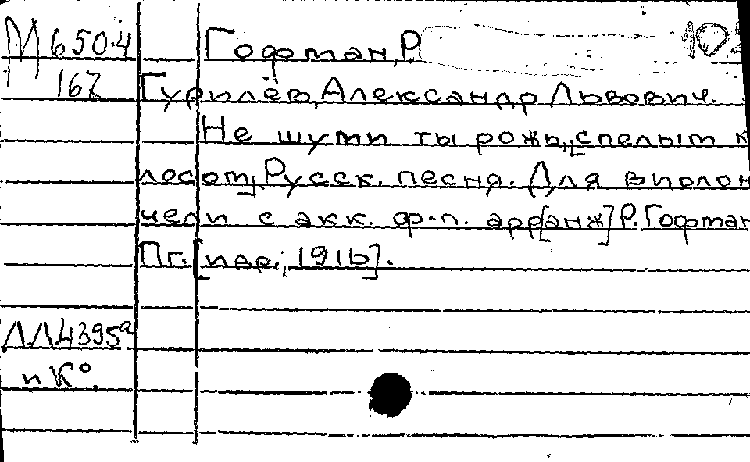 М 650.4 Гофман, Р.
167 Гурилёв, Александр Львович.
Не шуми ты рожь, спелым к
лосом, Русск. песня. Для виолон
чели с акк. ф-п. арр[анж] Р. Гофман
Пг. [ 1916].
4395а